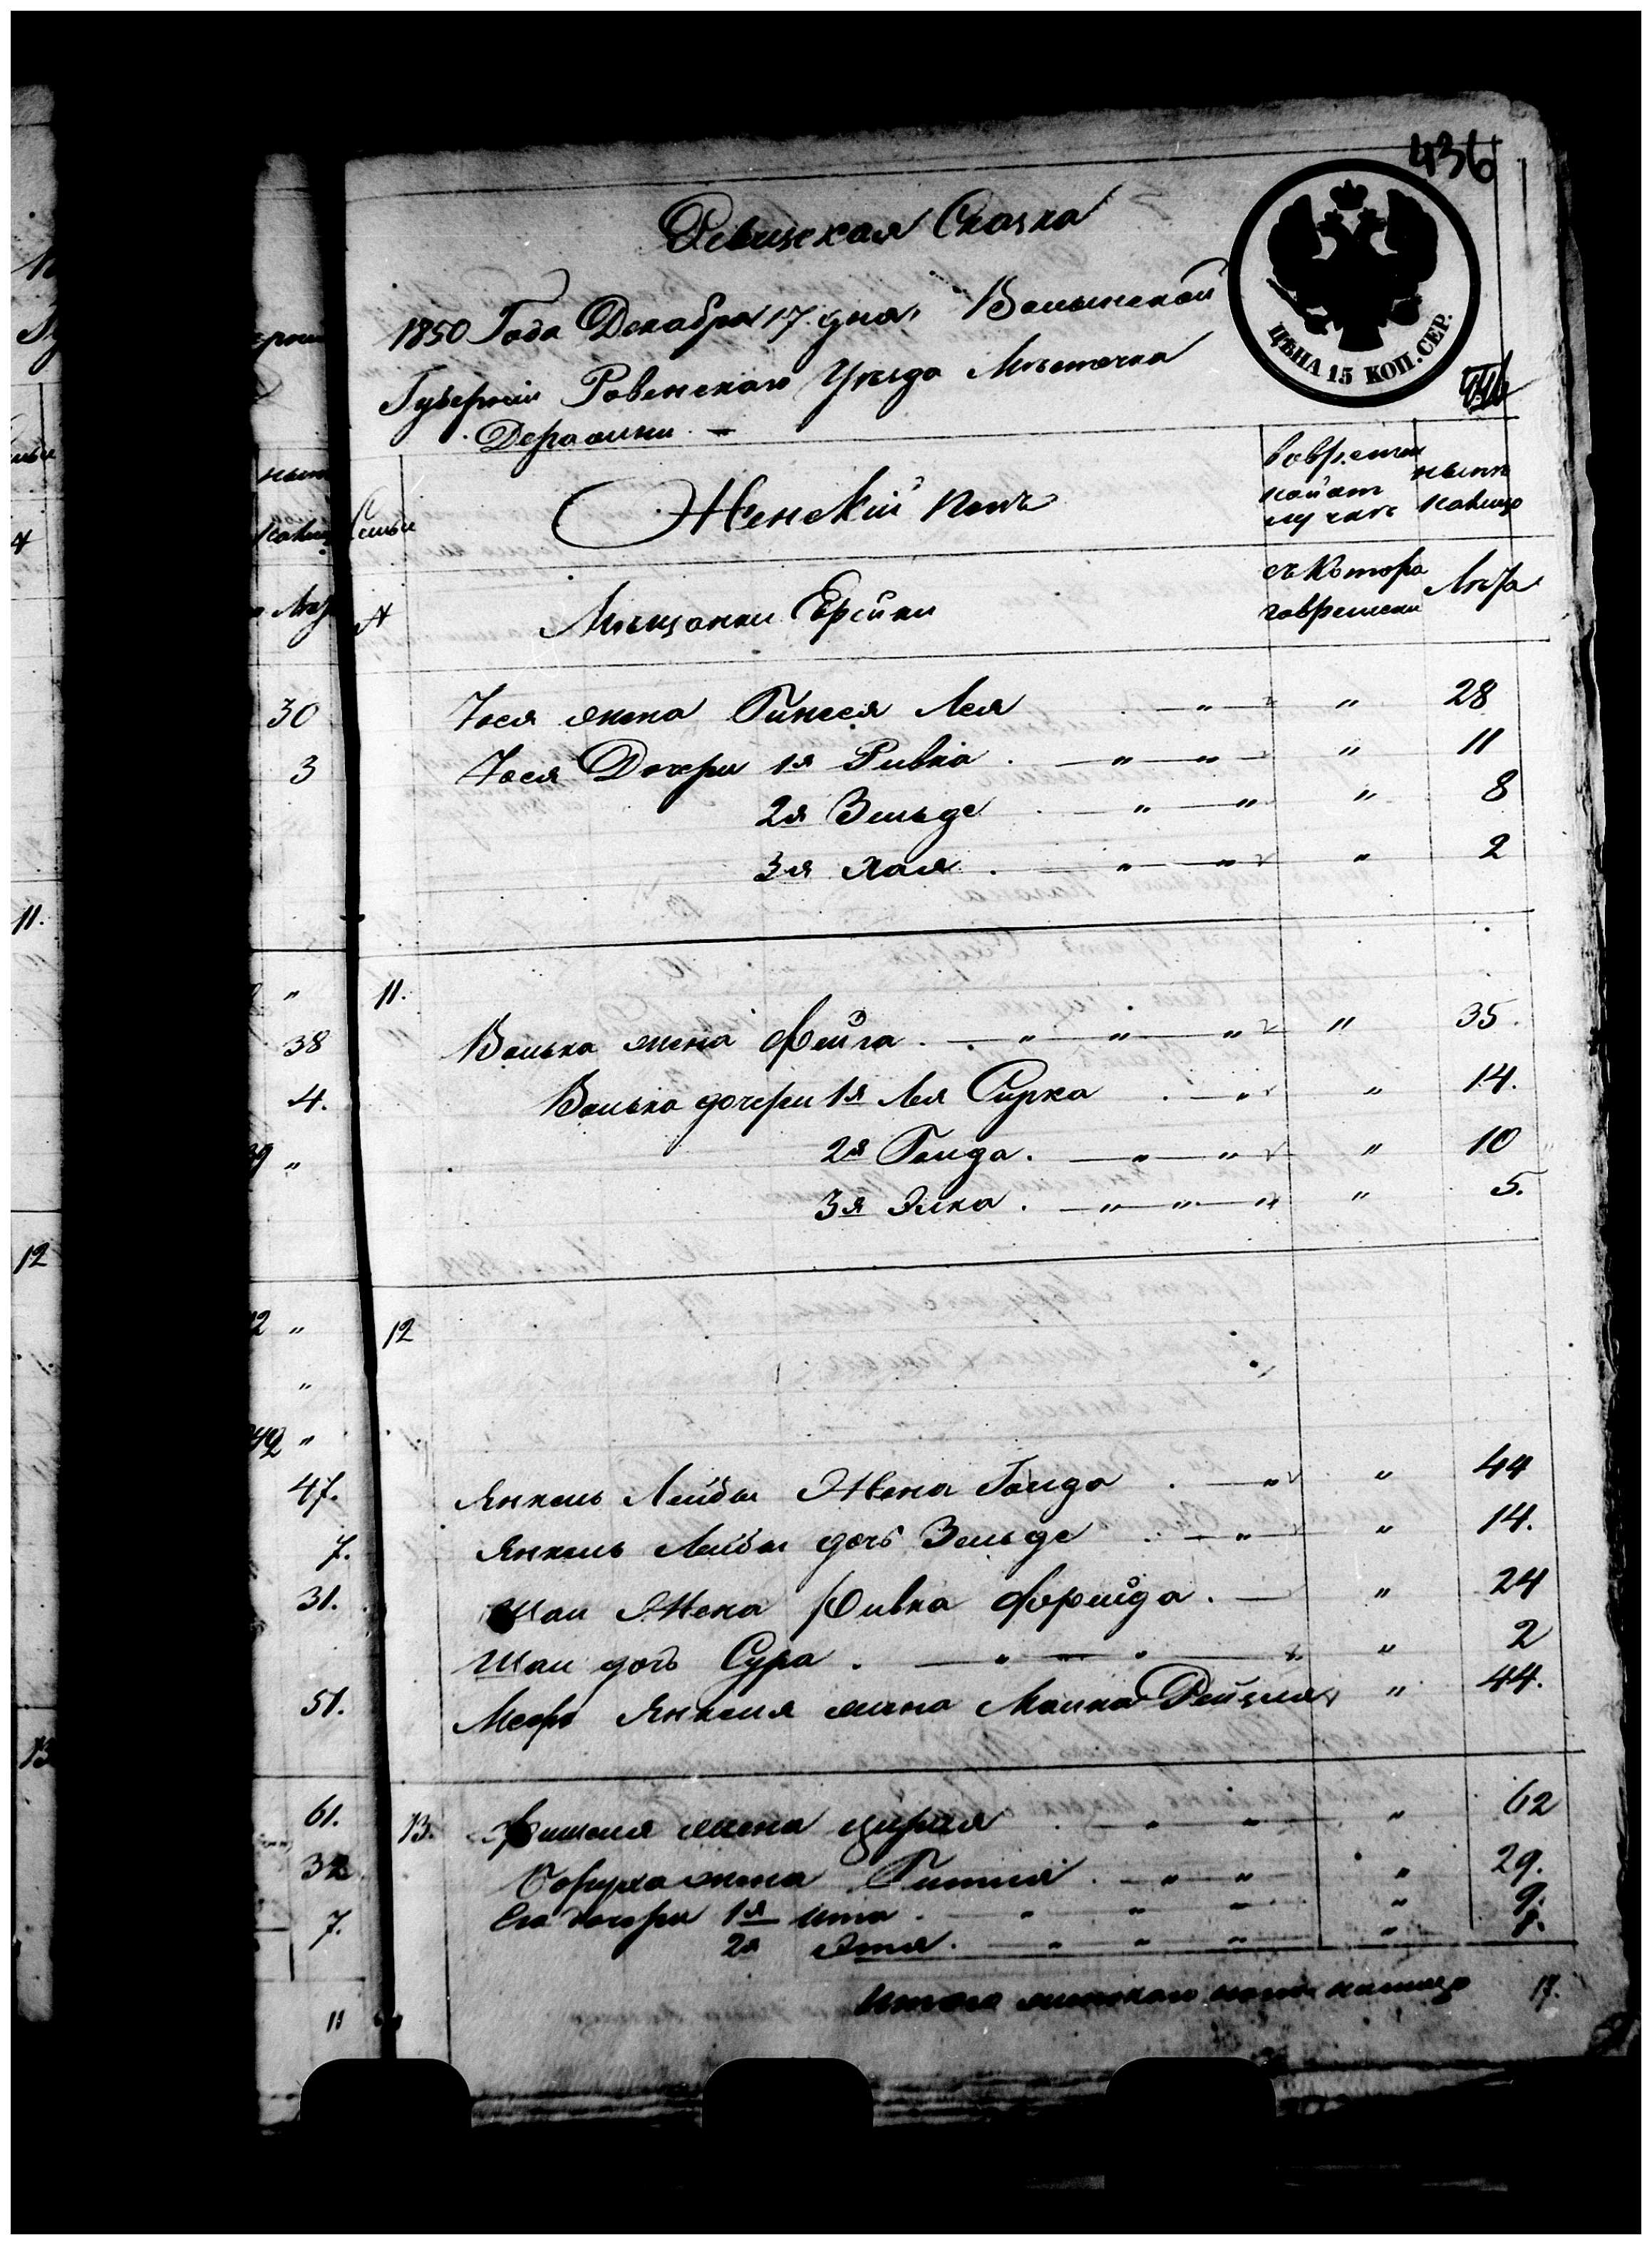 436
Ревизская Сказка
1850 Года Декабря 17 дня, Волынской
Губерніи Ровенского Уезда Местечка
Деражни
ЦѢНА 15 КОП. СЕР.
Семьи
Женскій полъ
во временной отлучке
ныне налицо
№
Мещанки Еврейки
съ котораго времени
Лета
Иося жена Гинеся Лея " " 28
Иося Дочери 1я Ривка " " " 11
2я Зельде " " " 8
3я Хая " " " 2
11.
Волька жена Фейга " " " " 35.
Волька дочери 1я Лея Сурка " " 14.
2я Голда " " " 10
3я Элка " " " " 5.
12
Янкель Лейбы Жена Голда " " 44
Янкель Лейбы дочь Зельде " " 14.
Шаи Жена Ривка Фрейда " 24
Шаи дочь Сура " " " 2
Меера Янкеля жена Малка Рейзля " 44.
13. Фишеля жена Цирля " " " 62
Боруха жена Гитля " " " 29.
Его дочери 1я Ита " " " " 9.
2я Этя " " " "
Итого женского пола налицо 17.
30
3
38
4.
47.
7.
31.
51.
61.
32
7.
11
11.
12
13